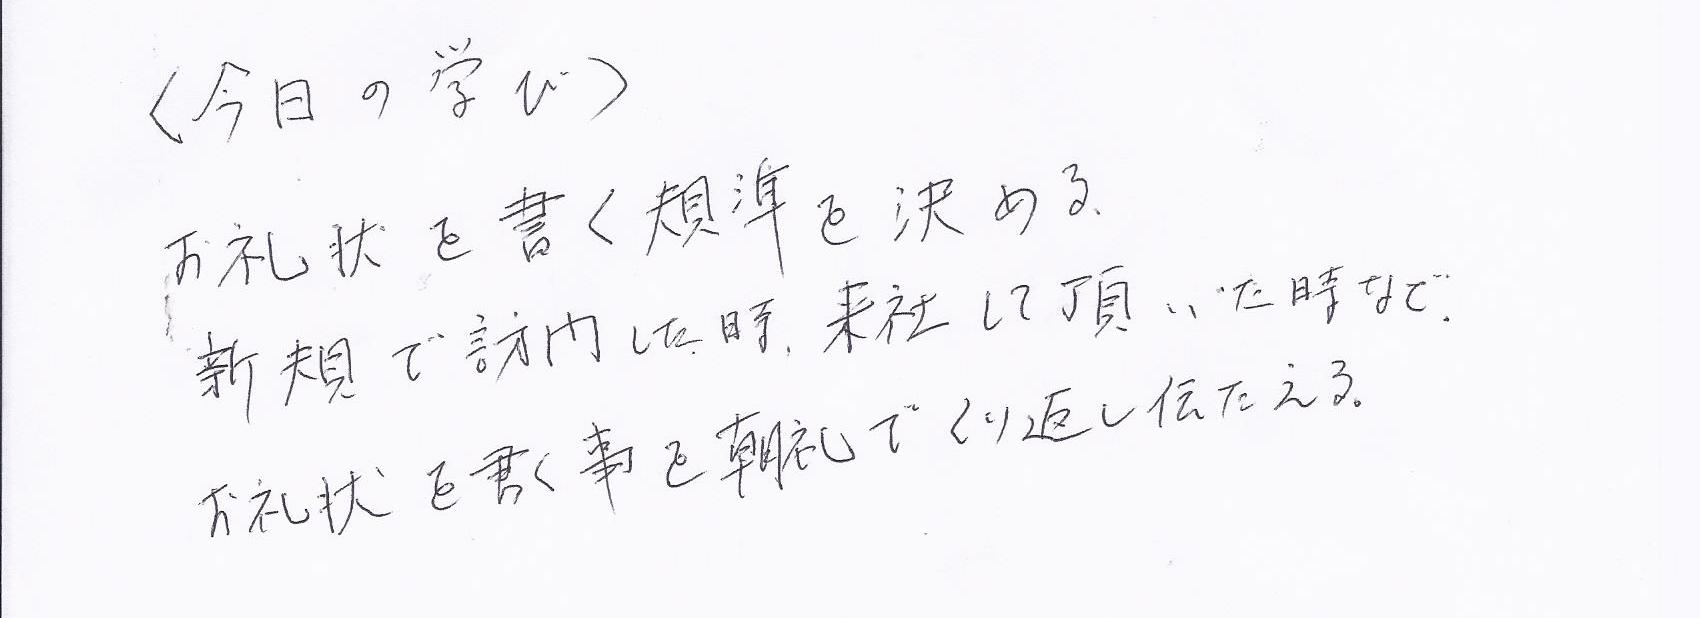 〈今日の学び〉
お礼状を書く規準を決める、
新規で訪内した時、来社して頂いた時など、
お礼状を書く事を朝礼でくり返し伝たえる。